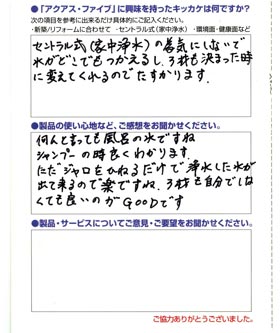 ●「アクアス・ファイブ」に興味を持ったキッカケは何ですか?
次の項目を参考に出来るだけ具体的にご記入ください。
・新築/リフォームに合わせて ・セントラル式(家中浄水) ・環境面・健康面など
セントラル式(家中浄水)の為気にしないで
水がどこでもつかえるし、3材も決まった時
に変えてくれるのでたすかります.
●製品の使い心地など、ご感想をお聞かせください。
何んと言っても風呂の水ですね
シャンプーの時良くわかります.
ただジャロをひねるだけで浄水した水が
出て来るので楽ですね.3材も自分でしな
くても良いのがGOODです
●製品・サービスについてご意見・ご要望をお聞かせください。
ご協力ありがとうございました。